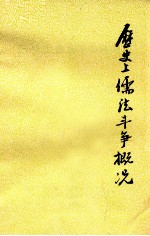 历史上儒法斗争概况